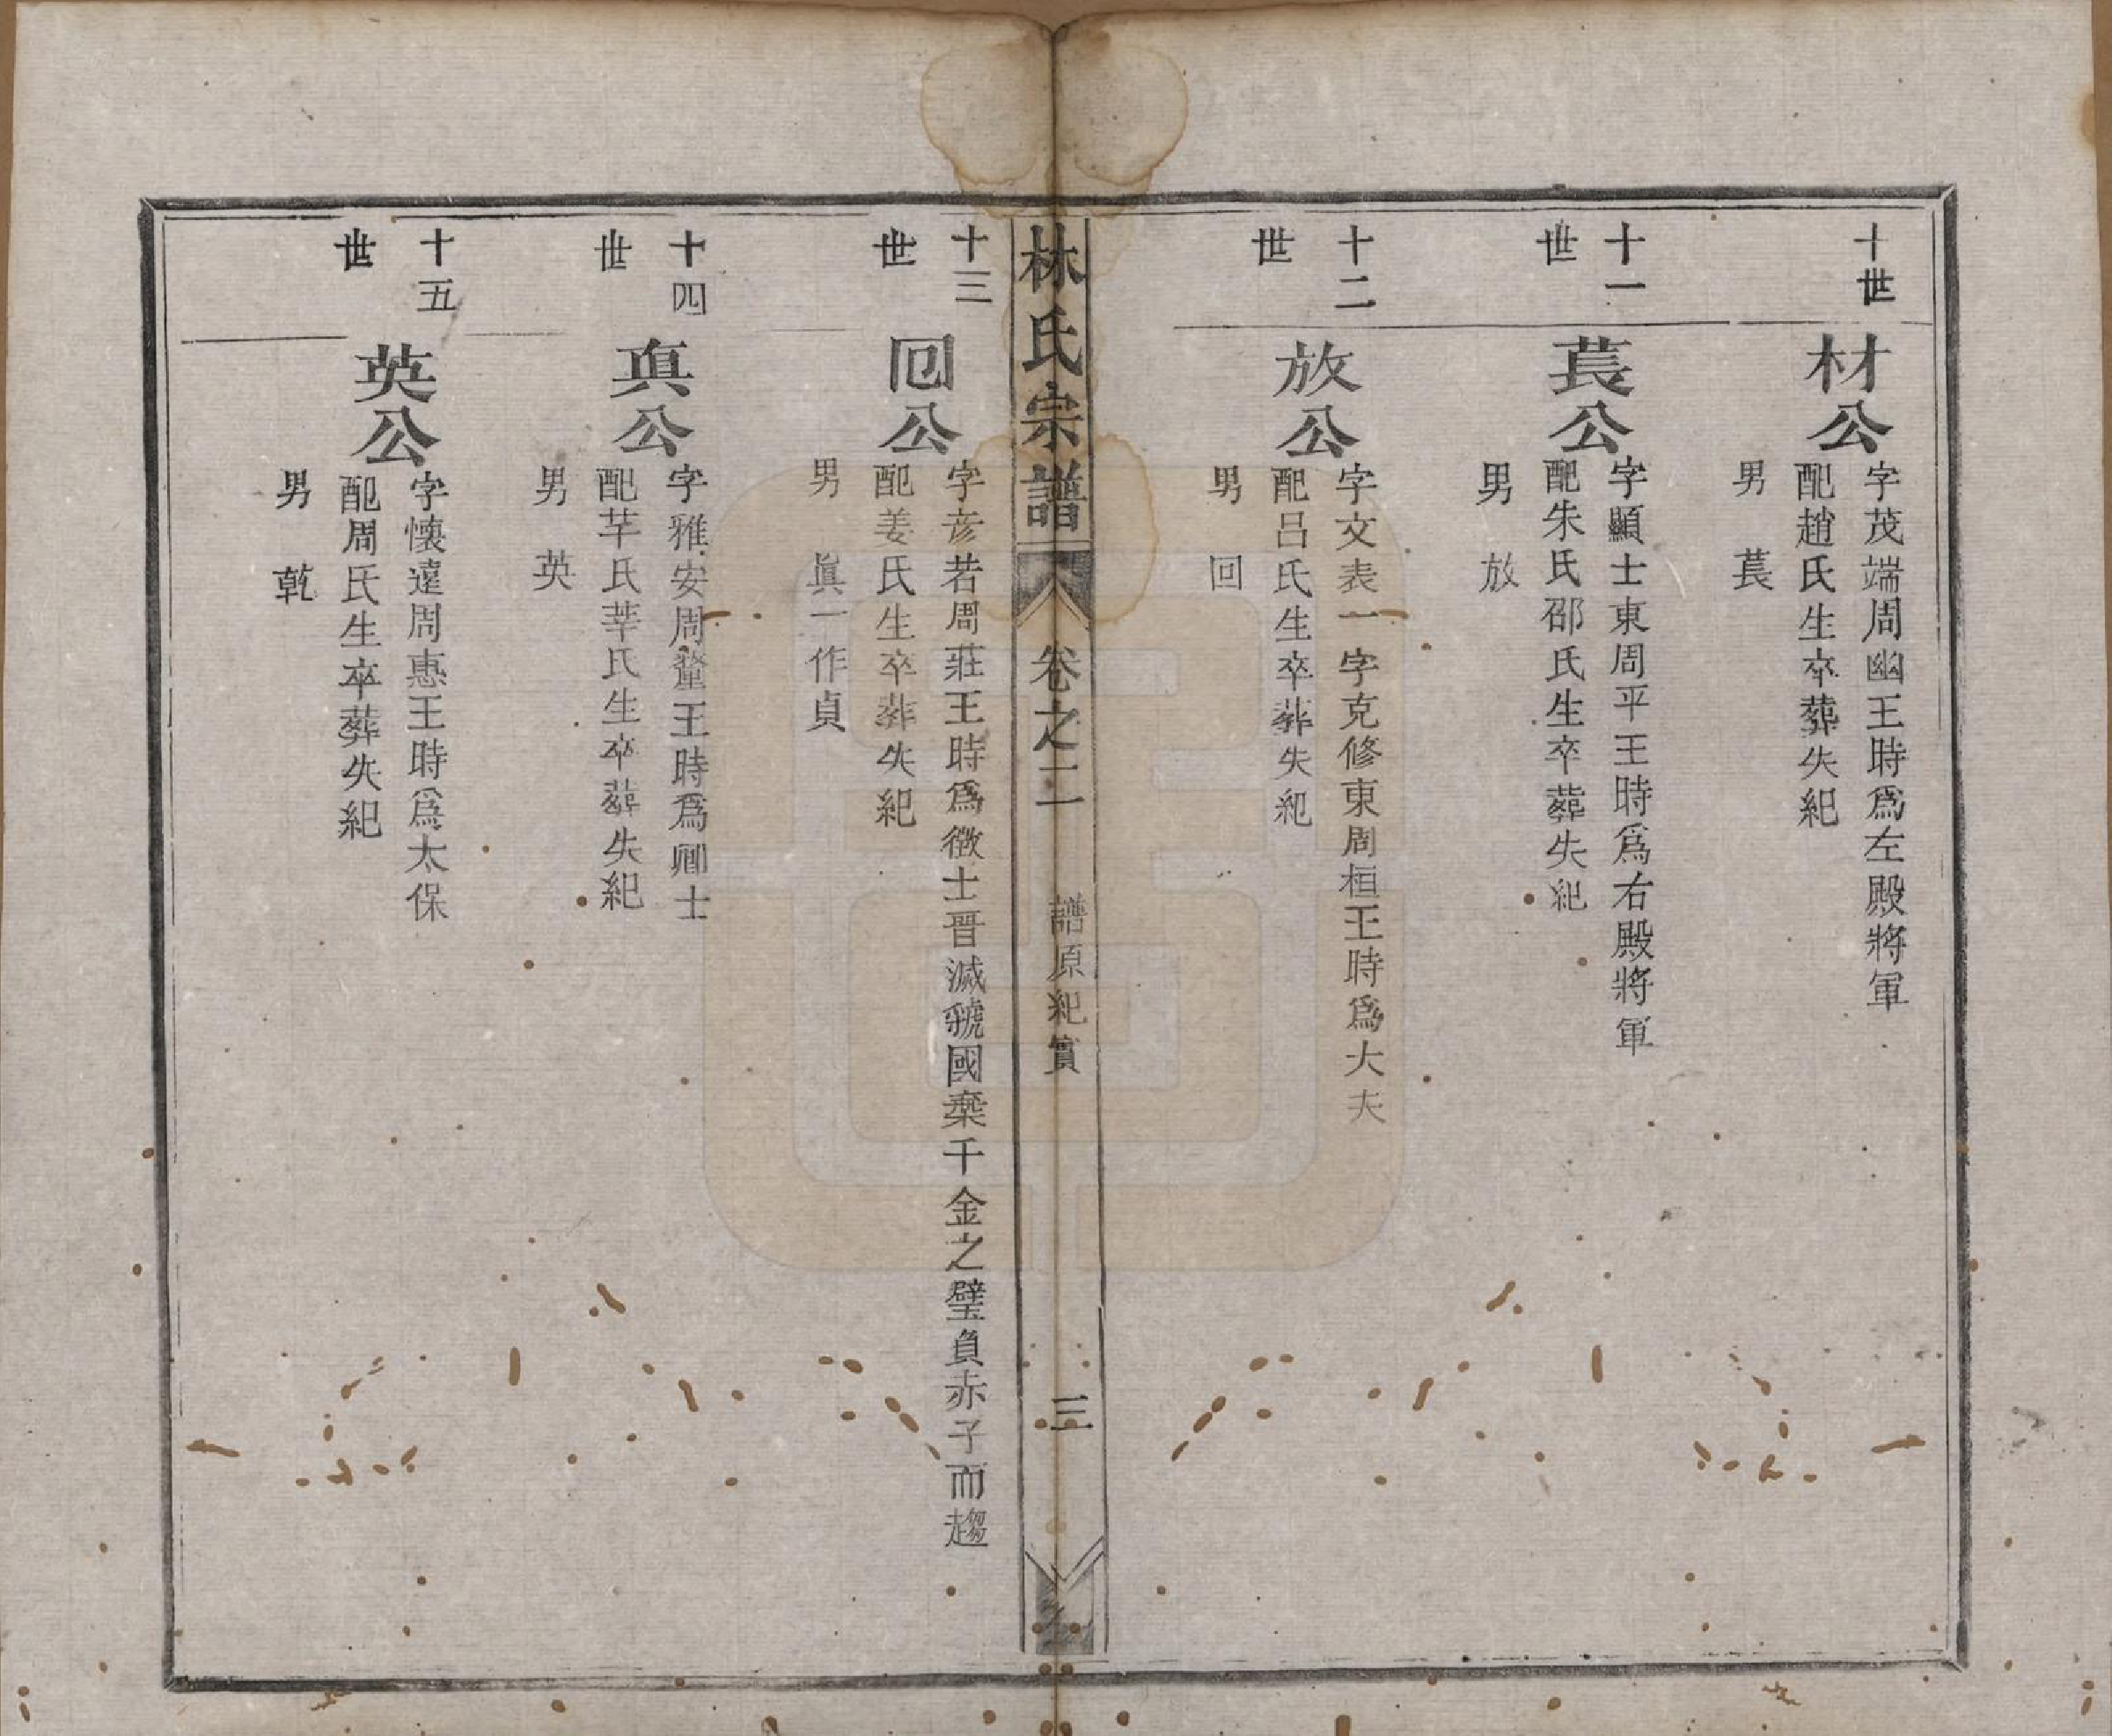 十世
材公
字茂端周幽王時爲左殿將軍
配趙氏生卒葬失紀
男萇
十一世
萇公
字顯士東周平王時爲右殿將軍
配朱氏邵氏生卒葬失紀
男放
十二世
放公
字文表一字克修東周桓王時爲大夫
配呂氏生卒葬失紀
男回
林氏宗譜
卷之二
譜原紀實
三
十三世
回公
字彦若周莊王時爲徵士晋滅虢國棄千金之璧負赤子而趨
配姜氏生卒葬失紀
男眞一作貞
十四世
真公
字雅安周釐王時爲卿士
配芊氏莘氏生卒葬失紀
男英
十五世
英公
字懐遠周惠王時爲太保
配周氏生卒葬失紀
男乾